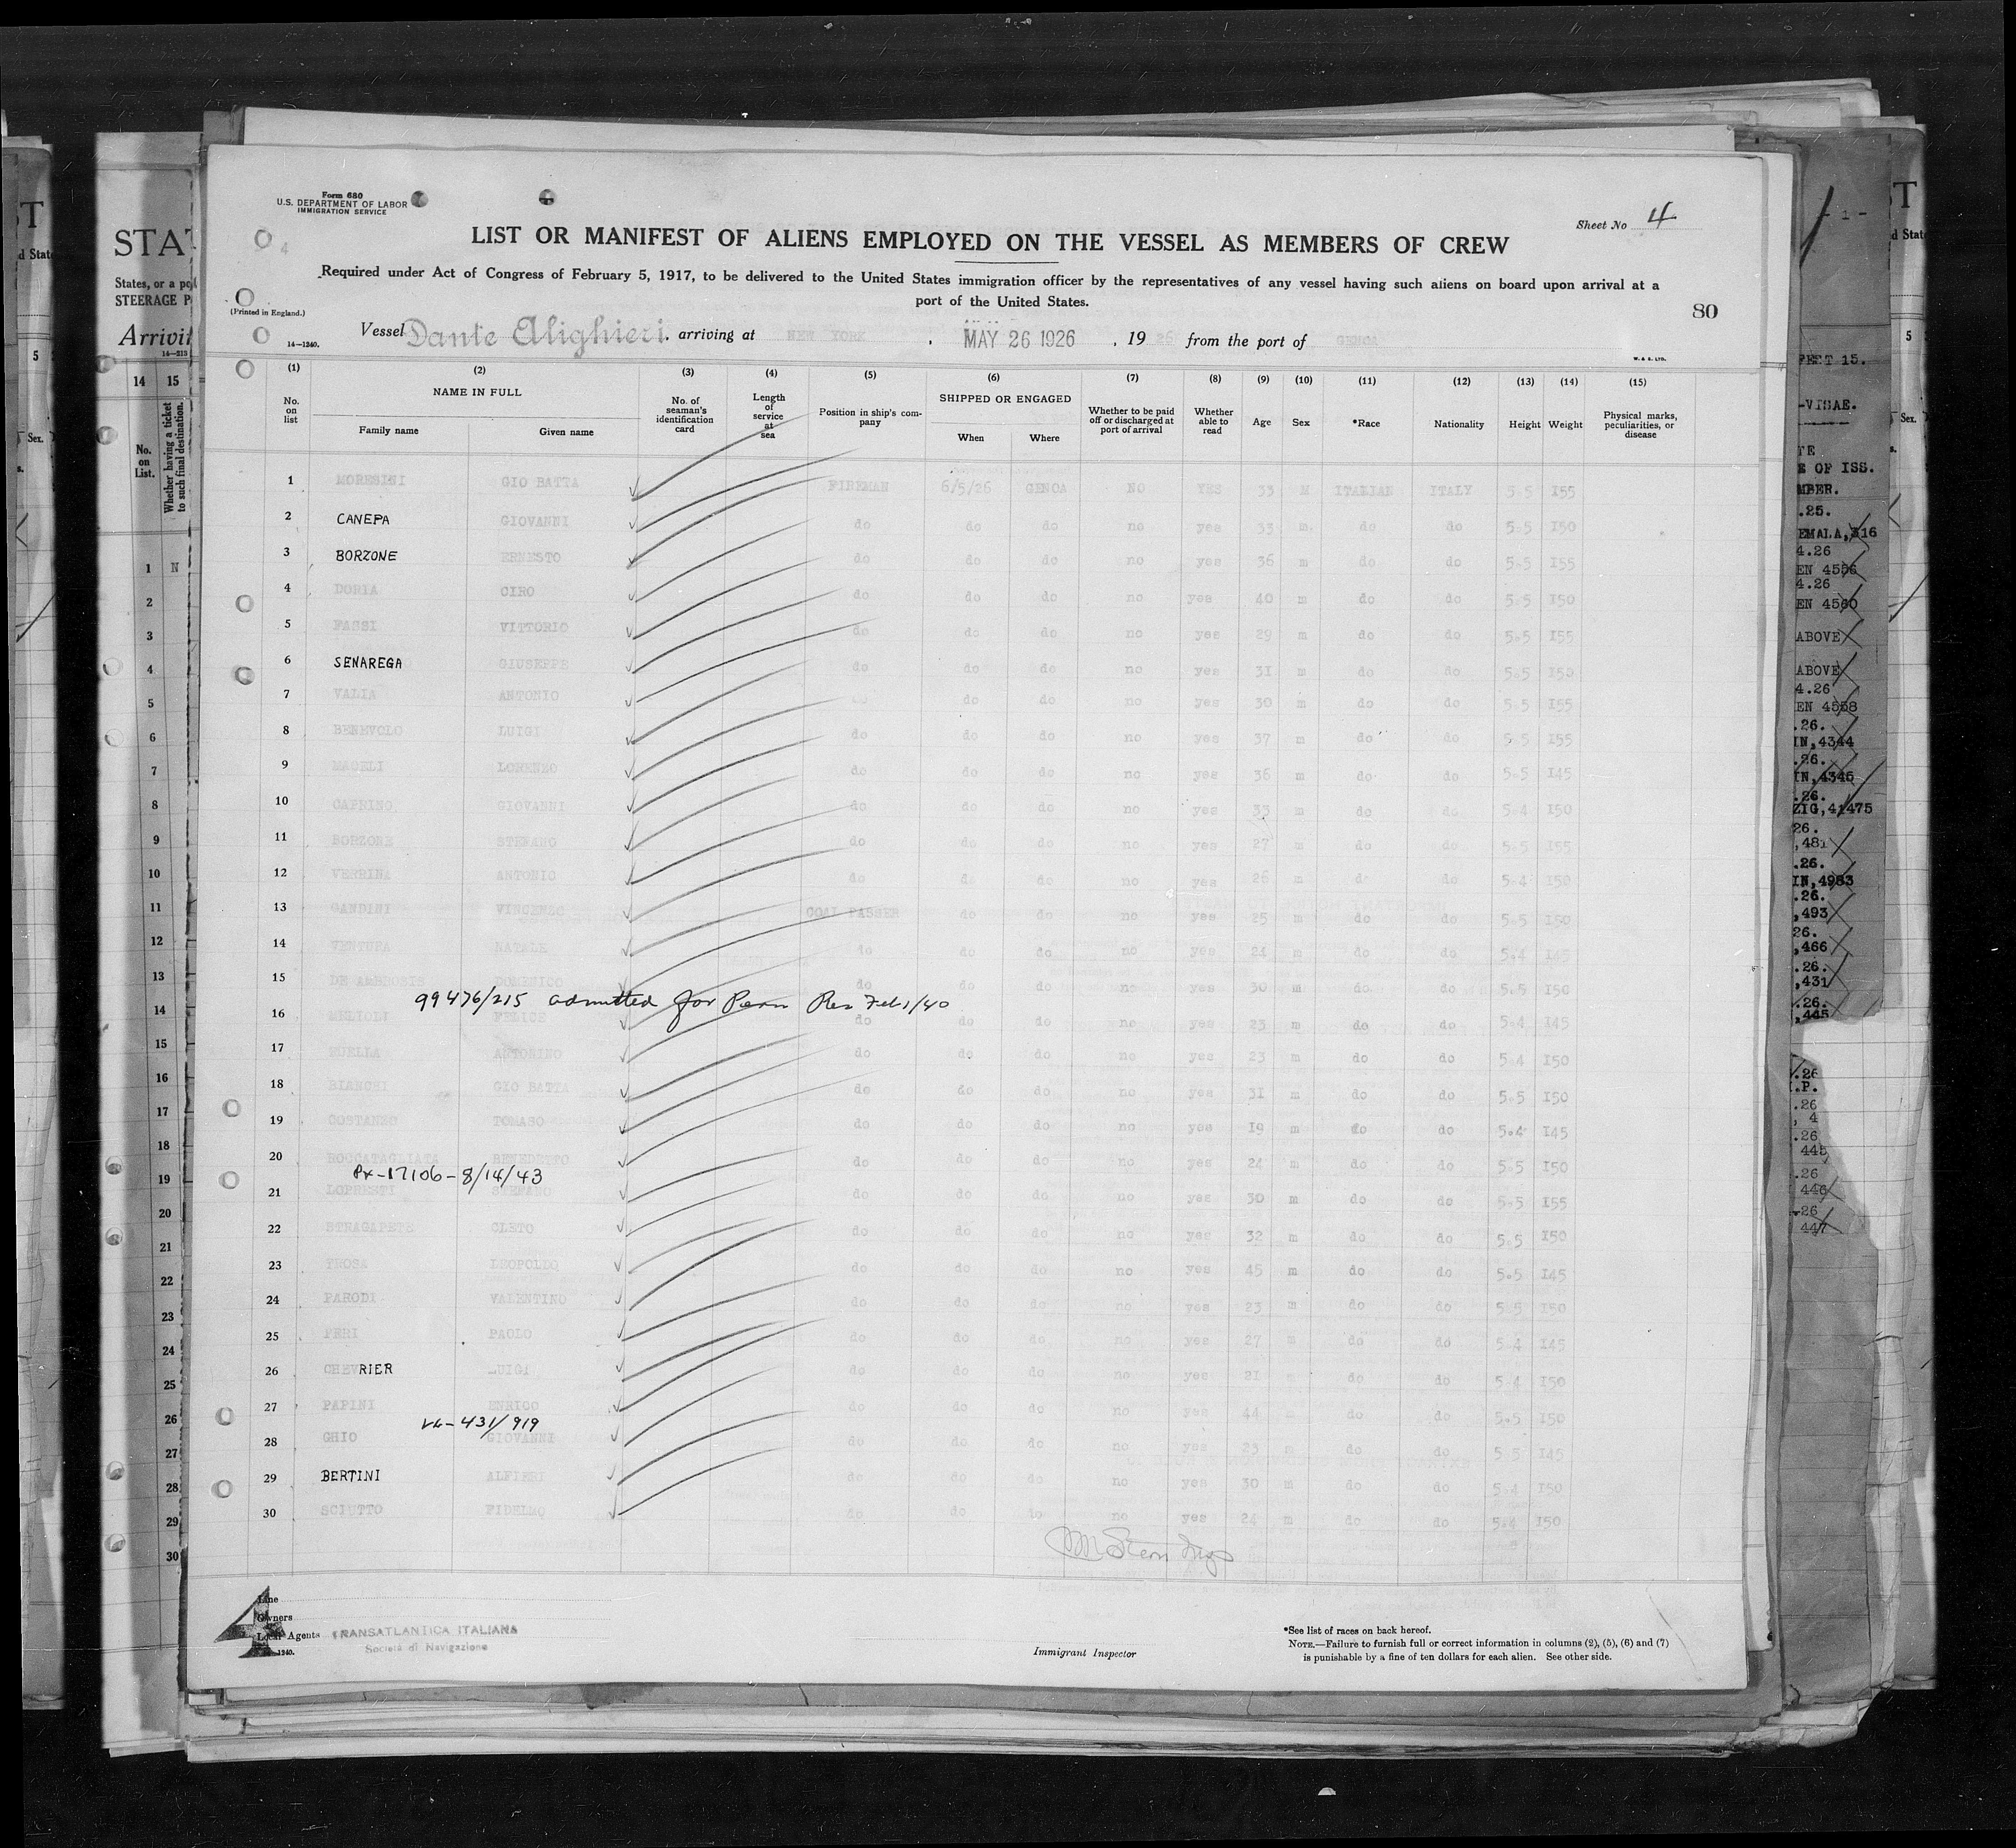 Form 680
U.S. DEPARTMENT OF LABOR
IMMIGRATION SERVICE
Sheet No 4
LIST OR MANIFEST OF ALIENS EMPLOYED ON THE VESSEL AS MEMBERS OF CREW
Required under Act of Congress of February 5, 1917, to be delivered to the United States immigration officer by the representatives of any vessel having such aliens on board upon arrival at a
port of the United States.
80
(Printed in England.)
14—1240.
Vessel Dante Alighieri, arriving at NEW YORK, MAY 26 1926, 19 26 from the port of GENOA
W. & S. LTD.
(1) (2) (3) (4) (5) (6) (7) (8) (9) (10) (11) (12) (13) (14) (15)
No. on list NAME IN FULL Family name Given name No. of seaman's identification card Length of service at sea Position in ship's company SHIPPED OR ENGAGED When Where Whether to be paid off or discharged at port of arrival Whether able to read Age Sex *Race Nationality Height Weight Physical marks, peculiarities, or disease
1 MORESINI GIO BATTA FIREMAN 6/5/26 GENOA NO YES 33 M ITALIAN ITALY 5-5 155
2 CANEPA GIOVANNI do do do no yes 33 m do do 5-5 150
3 BORZONE ERNESTO do do do no yes 36 m do do 5-5 155
4 DORIA CIRO do do do no yes 40 m do do 5-5 150
5 FASSI VITTORIO do do do no yes 29 m do do 5-5 155
6 SENAREGA GIUSEPPE do do do no yes 31 m do do 5-5 150
7 VALIA ANTONIO do do do no yes 30 m do do 5-5 155
8 BENEVOLO LUIGI do do do no yes 37 m do do 5-5 155
9 LORENZO do do do no yes 36 m do do 5-5 145
10 CAFRINO GIOVANNI do do do no yes 33 m do do 5-4 150
11 BORZONE STEFANO do do do no yes 27 m do do 5-5 155
12 VERRINA ANTONIO do do do no yes 26 m do do 5-4 150
13 GANDINI VINCENZO COAL PASSER do do no yes 25 m do do 5-5 150
14 VENTURA NATALE do do do no yes 24 m do do 5-4 145
15 DE AMBROSIS DOMENICO do do do no yes 30 m do do 5-5 150
99476/215 admitted for Perm Res Feb 1/40
16 MELIOLI FELICE do do do no yes 23 m do do 5-4 145
17 ANTONINO do do do no yes 23 m do do 5-4 150
18 BIANCHI GIO BATTA do do do no yes 31 m do do 5-5 150
19 COSTANZO TOMASO do do do no yes 19 m do do 5-4 145
20 ROCCATAGLIATA BENEDETTO do do do no yes 24 m do do 5-5 150
Px-17106-8/14/43
21 LOPRESTI STEFANO do do do no yes 30 m do do 5-5 155
22 STRAGAPETE CLETO do do do no yes 32 m do do 5-5 150
23 FROSA LEOPOLDO do do do no yes 45 m do do 5-5 145
24 PARODI VALENTINO do do do no yes 23 m do do 5-5 150
25 PERI PAOLO do do do no yes 27 m do do 5-4 145
26 CHEVRIER LUIGI do do do no yes 21 m do do 5-4 150
27 PAPINI ENRICO do do do no yes 44 m do do 5-5 150
431/919
28 GHIO GIOVANNI do do do no yes 23 m do do 5-5 145
29 BERTINI ALFIERI do do do no yes 30 m do do 5-4 150
30 SCIUTTO FIDELMO do do do no yes 24 m do do 5-4 150
Line
Owners
Local Agents TRANSATLANTICA ITALIANA
Società di Navigazione
4
1240.
Immigrant Inspector
*See list of races on back hereof.
NOTE.—Failure to furnish full or correct information in columns (2), (5), (6) and (7)
is punishable by a fine of ten dollars for each alien. See other side.